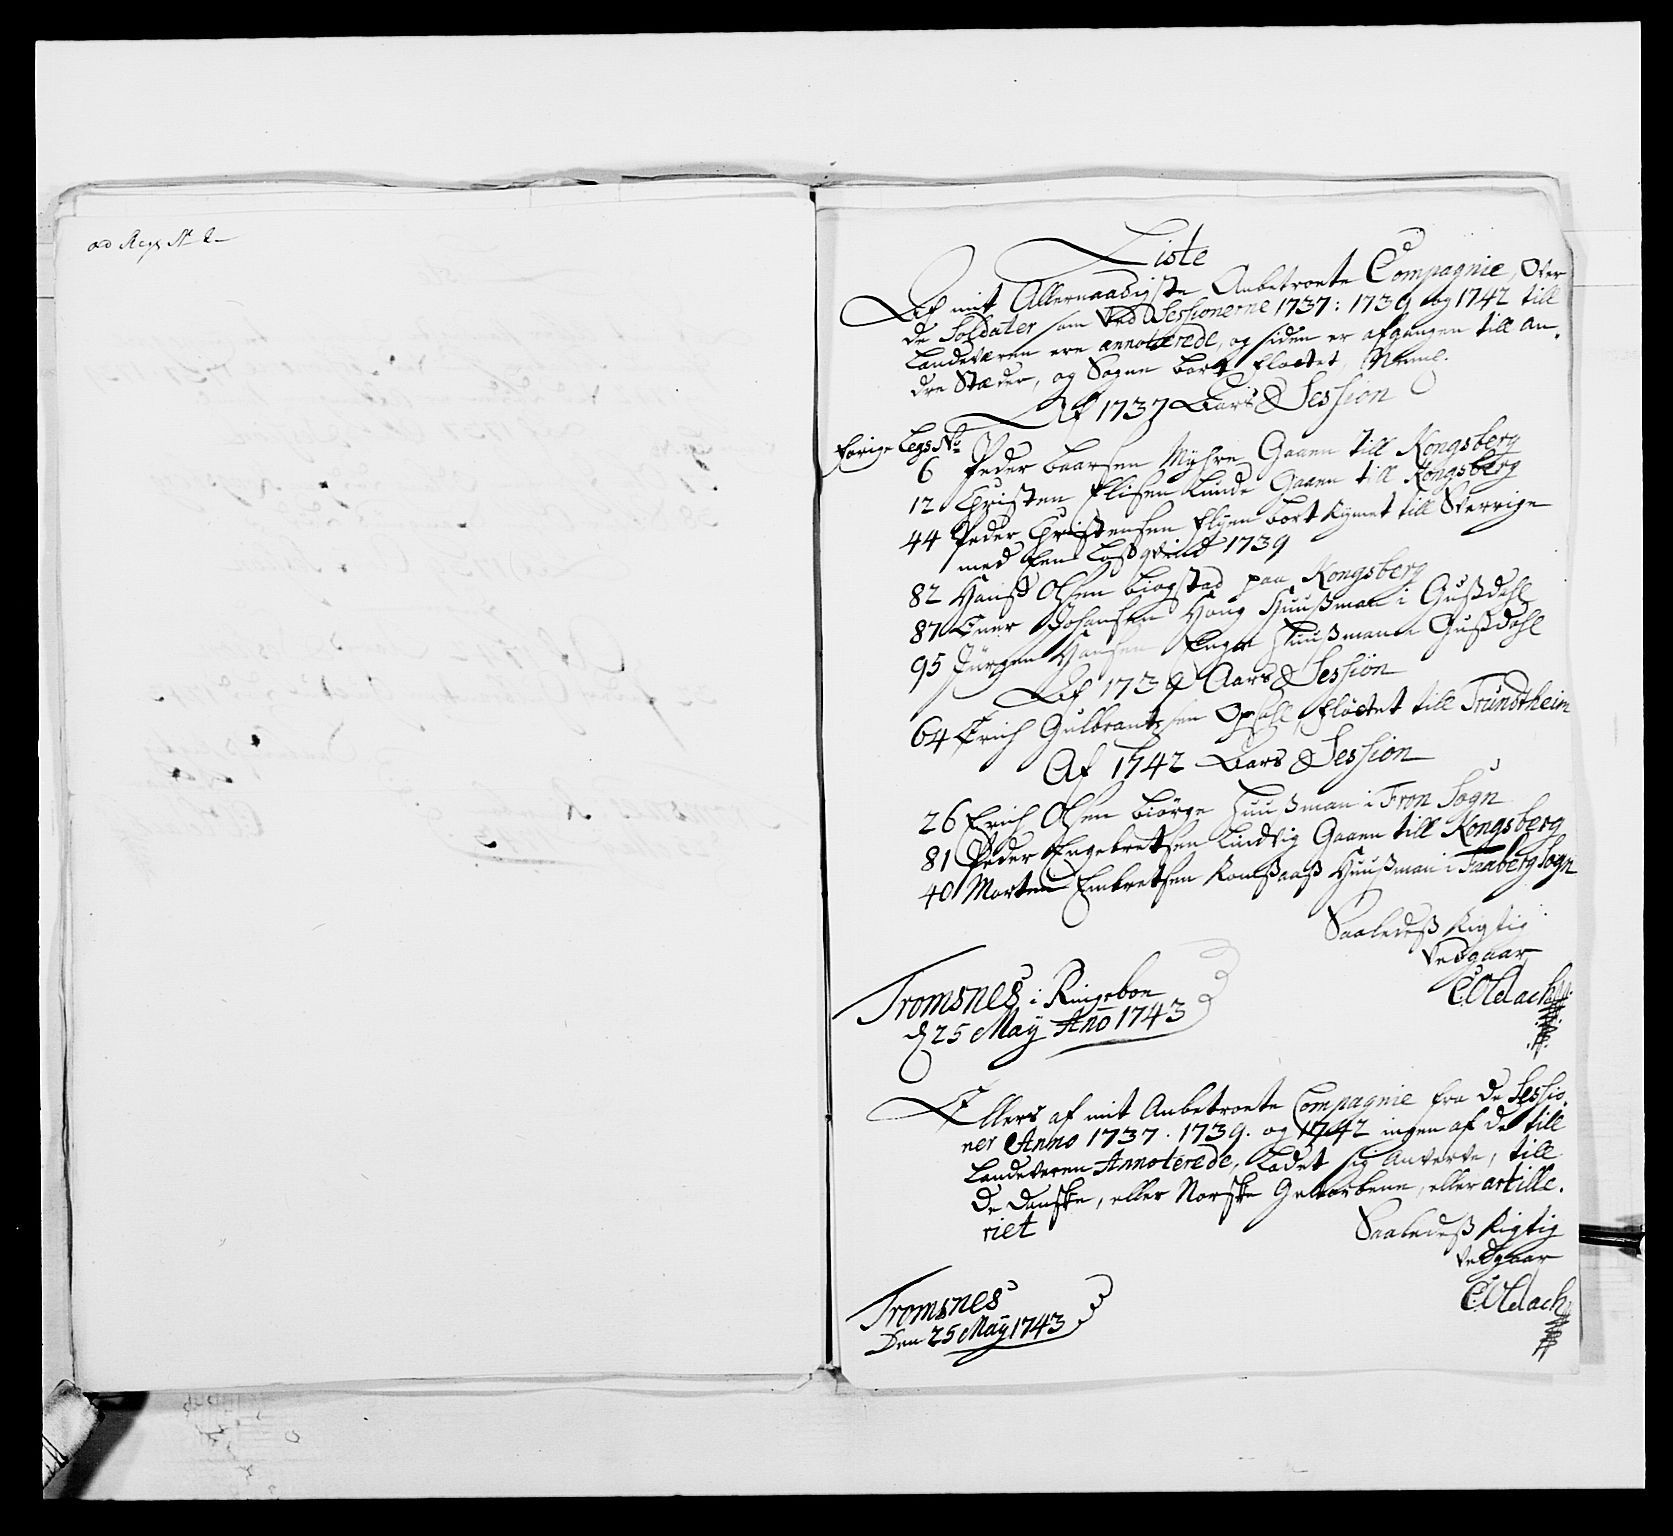 ad Reg No 2
Liste
Af mit Allernaadigste Anbetroete Compagnie, Over
de Soldater som ved Sessionerne 1737: 1739 og 1742 till
Landeværen ere annoterede, og siden er afgangen till An-
dre Stæder, og Sogne bort fløttet, Neml.
Af 1737 Aars Session
Forige Legs No
6 Peder Laarsen Myhre Gaaen till Kongsberg
12 Christen Elisen Lunde Gaaen till Kongsberg
44 Peder Christensen Flyen bort Rymet till Sverrige
med Een Løsqvind 1739
82 Hans Olsen Biogstad paa Kongsberg
87 Johansen Houg Huusman i Gusdahl
95 Jürgen Hansen Enge Huusman Gusdahl
Af 1739 Aars Session
64 Erich Gulbrantsen Opsahl, fløttet till Trundtheim
Af 1742 Aars Session
26 Erich Olsen Biørge Huusman i Fron Sogn
81 Peder Engebretsen Lindvig Gaaen till Kongsberg
40 Morten Embretsen Huusman i Faaberg Sogn
Saaledes Rigtig
vedgaar
Tromsnes i Ringeboe
d 25 May Ano 1743
COldach
Ellers af mit Anbetroete Compagnie fra de Sessio-
ner Anno 1737. 1739. og 1742 ingen af de till
Landeveren Annoterede, Ladet sig Anverve, till
de Danske, eller Norske Gevorbene, eller artille-
riet
Saaledes Rigtig
vedgaar
Tromsnes
Den 25 May 1743
COldach